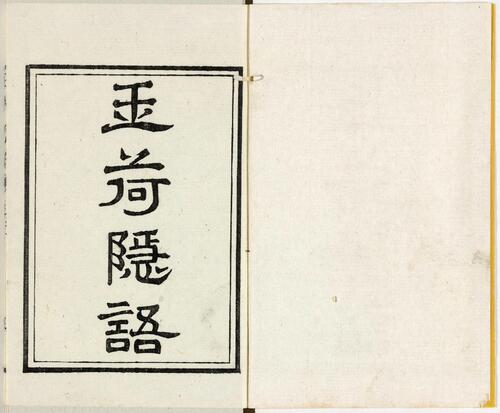 玉荷隱語